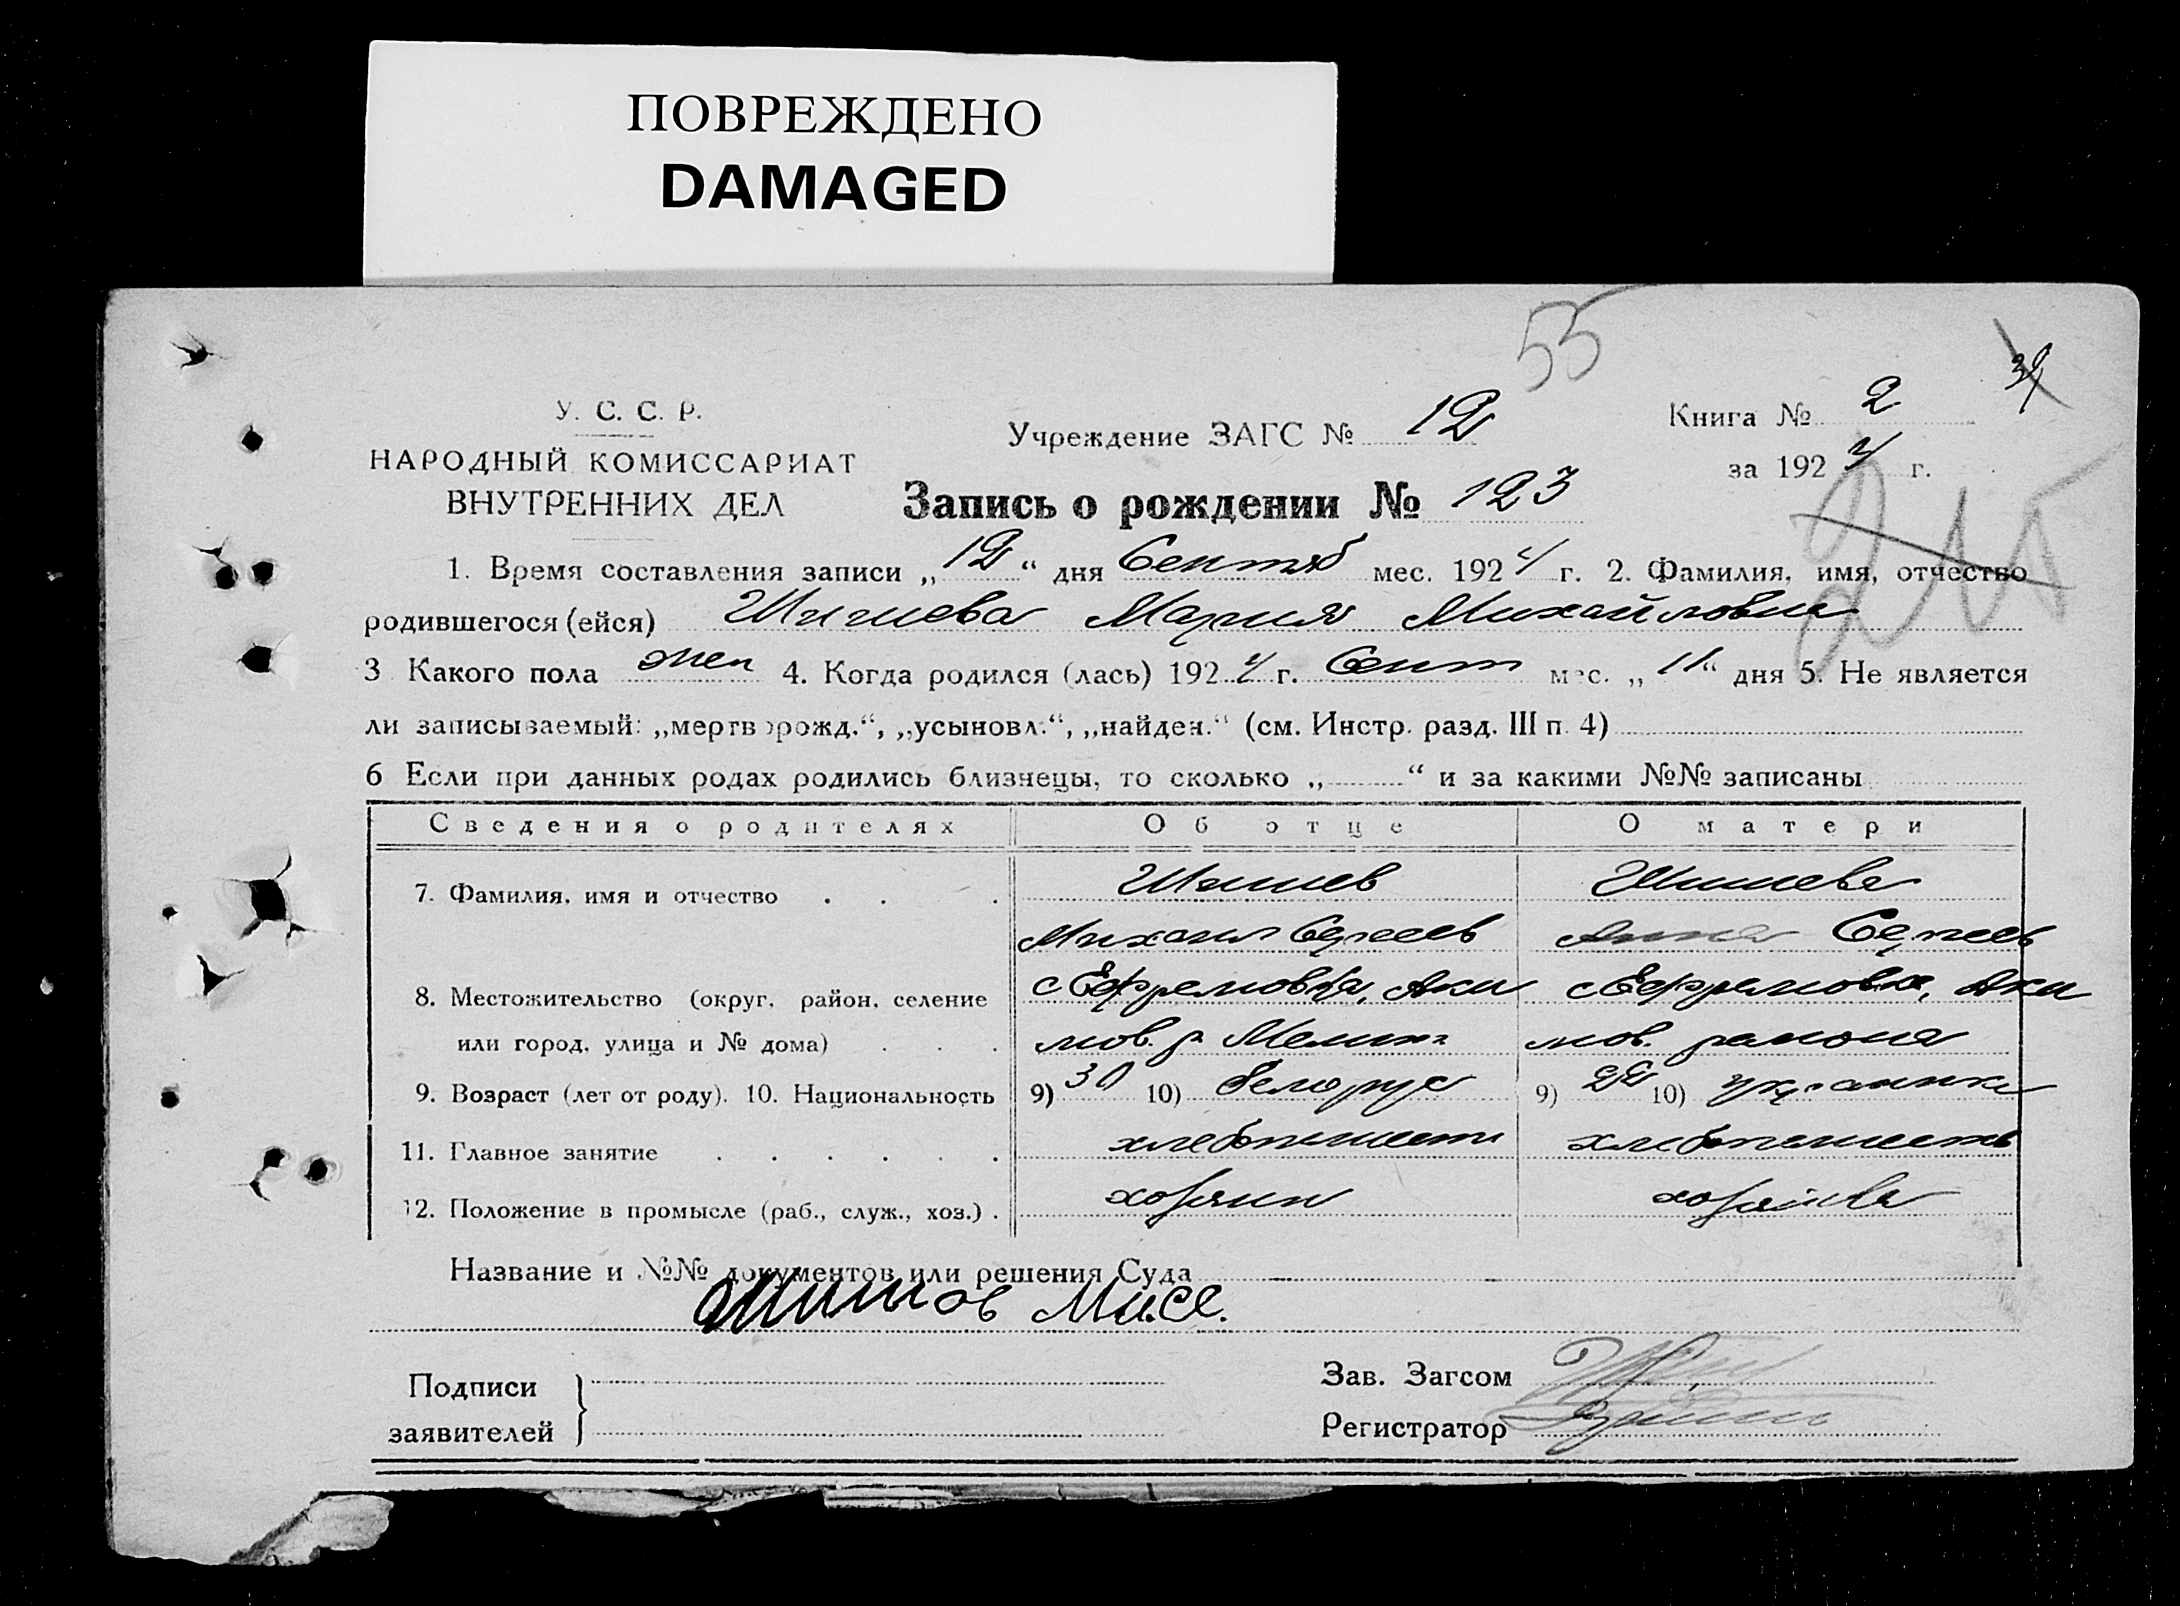 ПОВРЕЖДЕНО
DAMAGED
55
У. С. С. Р.
НАРОДНЫЙ КОМИССАРИАТ
ВНУТРЕННИХ ДЕЛ
Учреждение ЗАГС № 12
Книга № 2
за 1924 г.
Запись о рождении № 123
1. Время составления записи „12“ дня Сентяб мес. 1924 г. 2. Фамилия, имя, отчество
родившегося (ейся) Мария Михайловна
3 Какого пола жен 4. Когда родился (лась) 1924 г. Сент мес. „11“ дня 5. Не является
ли записываемый: „мертворожд.“, „усыновл.“, „найден.“ (см. Инстр. разд. III п. 4)
6 Если при данных родах родились близнецы, то сколько „ “ и за какими №№ записаны
Сведения о родителях Об отце О матери
7. Фамилия, имя и отчество
Михаил Сергеев Анна Сергеев
8. Местожительство (округ, район, селение с Ефремовка, Аки с Ефремовка, Аки
или город, улица и № дома) мов. р. Мелит мов. района
9. Возраст (лет от роду). 10. Национальность 9) 30 10) белорус 9) 22 10) украинка
11. Главное занятие хлебопашест хлебопашеств
12. Положение в промысле (раб., служ., хоз.) . хозяин хозяйка
Название и №№ документов или решения Суда
Подписи
заявителей
Зав. Загсом
Регистратор